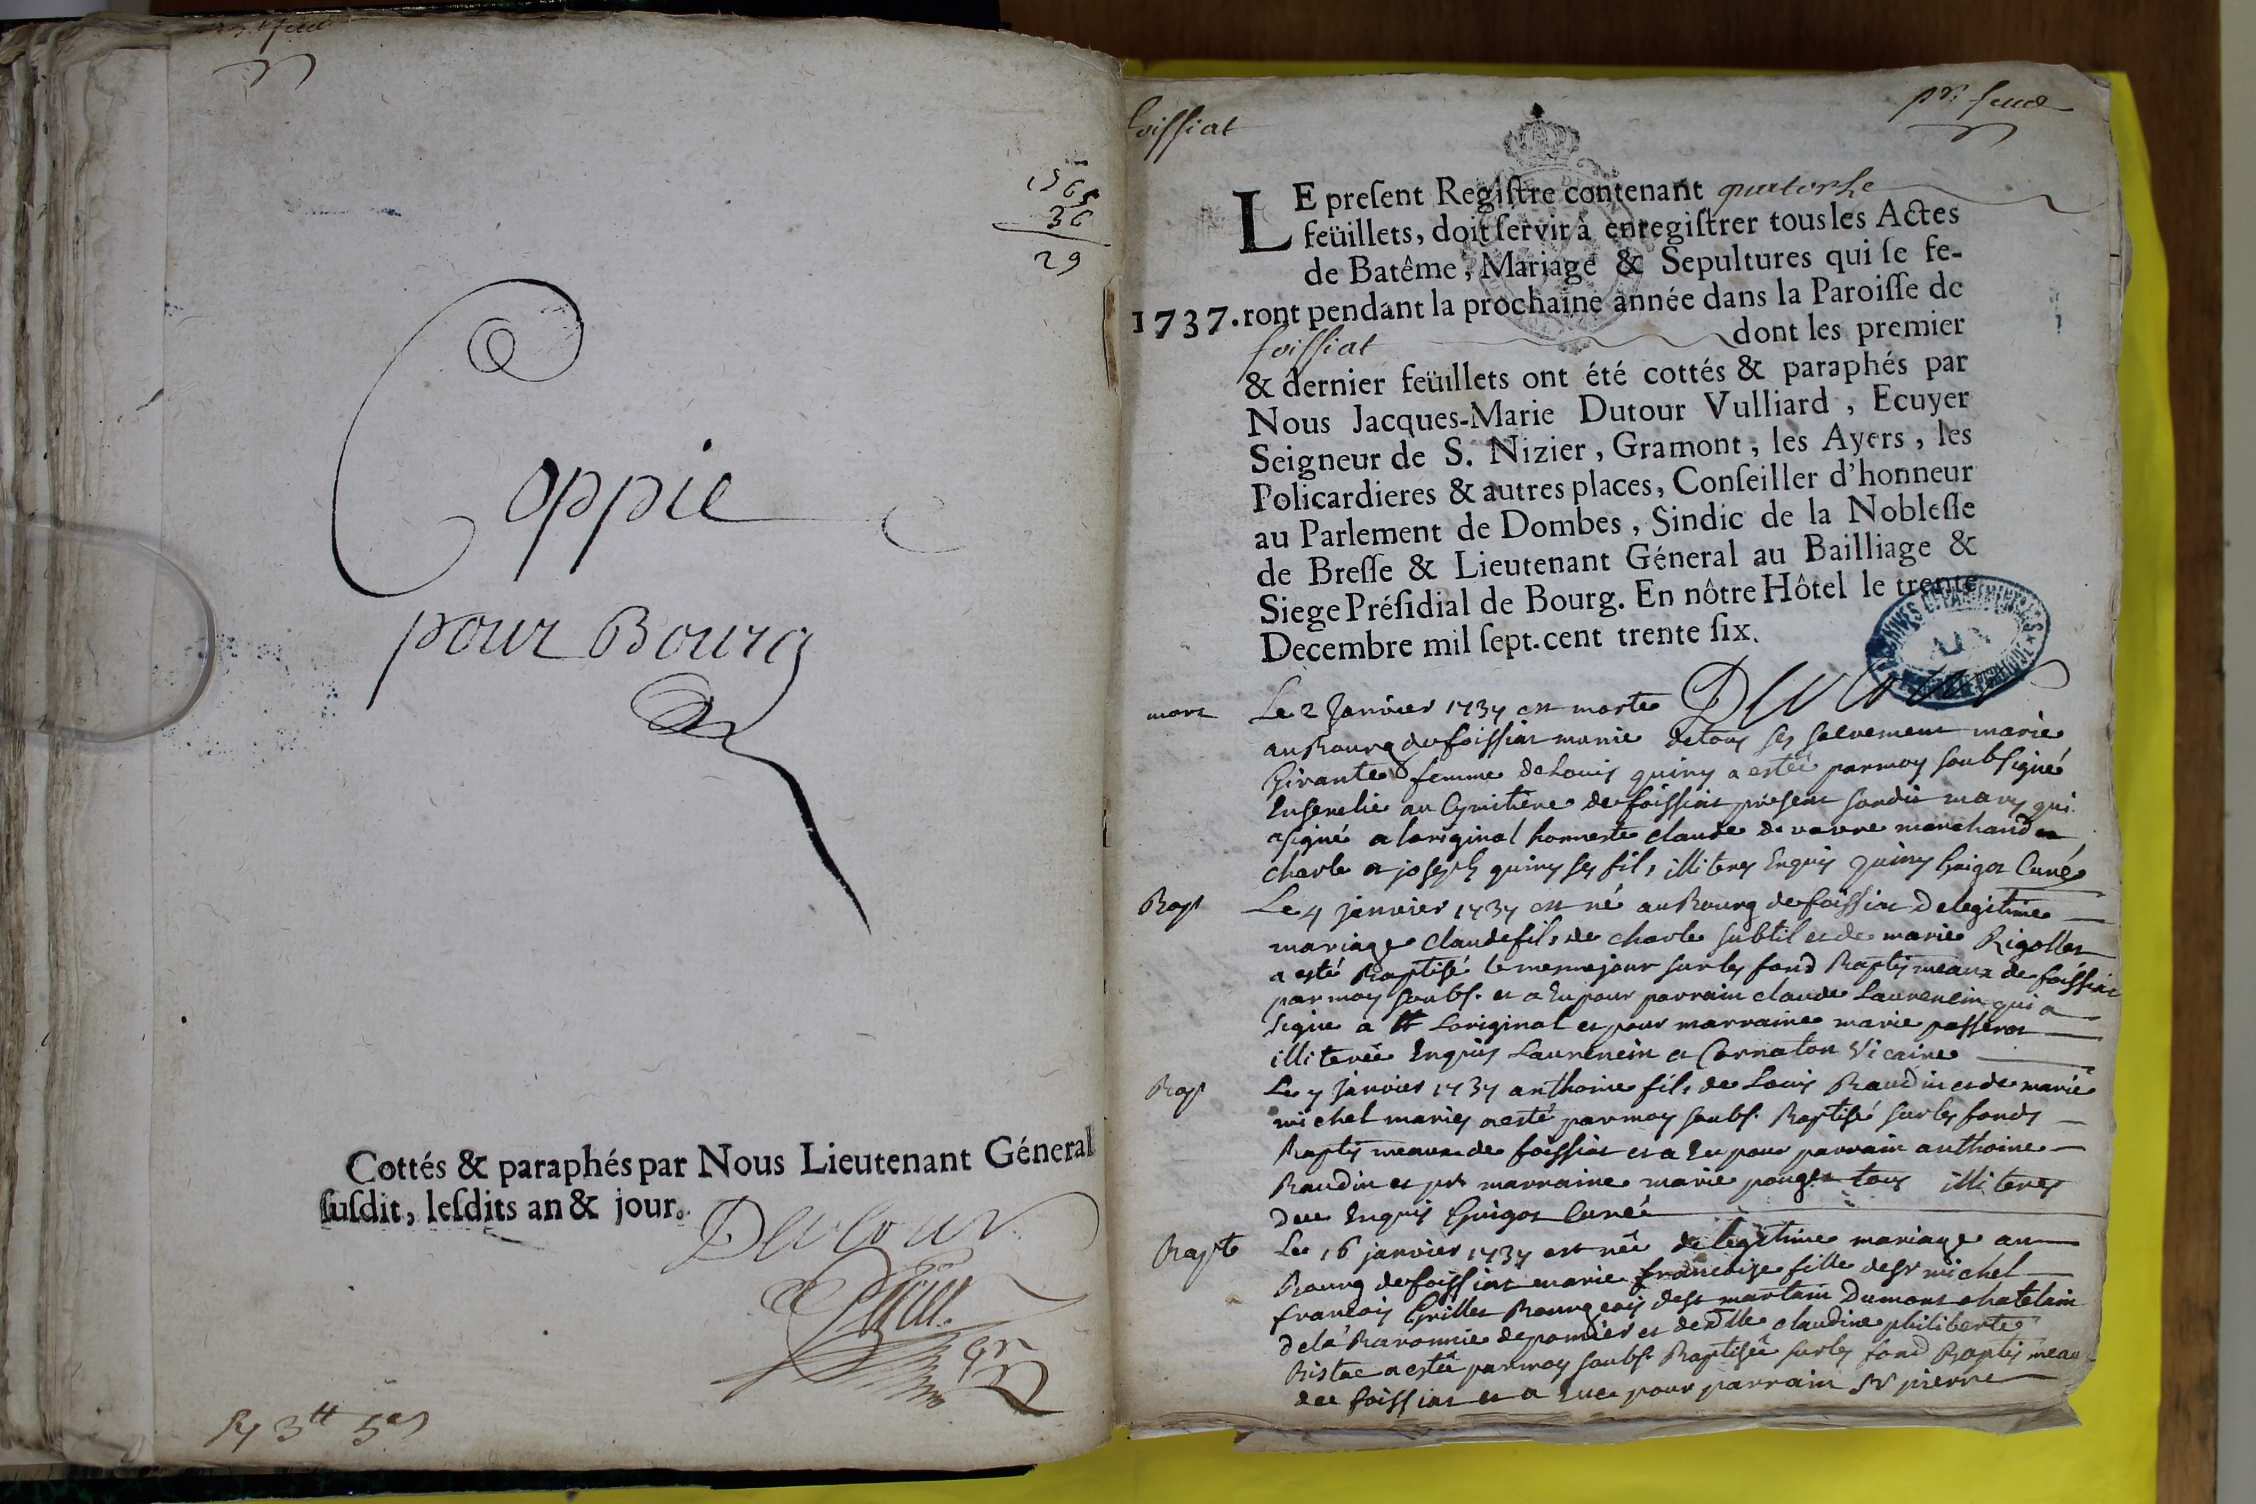 1565
36
29
Coppie
pour Bourg
Cottés & paraphés par Nous Lieutenant Géneral
ſuſdit, leſdits an & jour.
Dutour
Ry 3tt 5s
foissiat
pr. feuil
LE preſent Regiſtre contenant quatorse
feüillets, doit ſervir à enregiſtrer tous les Actes
de Batême, Mariage & Sepultures qui ſe fe-
1737. ront pendant la prochaine année dans la Paroiſſe de
foissiat dont les premier
& dernier feüillets ont été cottés & paraphés par
Nous Jacques-Marie Dutour Vulliard, Ecuyer
Seigneur de S. Nizier, Gramont, les Ayers, les
Policardieres & autres places, Conſeiller d'honneur
au Parlement de Dombes, Sindic de la Nobleſſe
de Breſſe & Lieutenant Géneral au Bailliage &
Siege Préſidial de Bourg. En nôtre Hôtel le trente
Decembre mil ſept-cent trente ſix.
Dutour
mort Le 2 Janvier 1737 est morte
au Bourg de foissiat munie de tous ses marie
femme de Louis quiny a estée par moy soubsigné
Ensevelie au Cymitiere de foissiat présent sondit mary qui
a signé a loriginal honneste claude de vavre marchand et
charle et joseph quiny ses fils illiteres Enquis quiny Guigot Curé
Bapt Le 4 janvier 1737 est né au Bourg de foissiat De legitime
mariage claude fils de charle subtil et de marie Rigollet
a esté Baptisé le mesme jour sur les fond Baptismeaux de foissiat
par moy soubs. et a Eu pour parrain claude Laurencin qui a
signe a Loriginal et pour marraine marie passerat
illiterée Enquis Laurencin et Cornaton Vicaire
Bapt Le 7 janvier 1737 anthoine fils de Louis Baudin et de marie
michel mariés a esté par moy soubs. Baptisé sur les fonds
Baptismeaux de foissiat et a Eu pour parrain anthoine
Baudin et pr marraine marie ponget tous illiteres
Enquis Guigot Curé
Bapte Le 16 janvier 1737 est née de legitime mariage au
Bourg de foissiat marie francoise fille de sr michel
francois Grillet Bourgeois de st martin Dumont chatelain
de la Baronnie de et de dlle claudine philiberte
a estée par moy soubs. Baptisée sur les fond Baptismeaux
de foissiat et a Eue pour parrain sr pierre